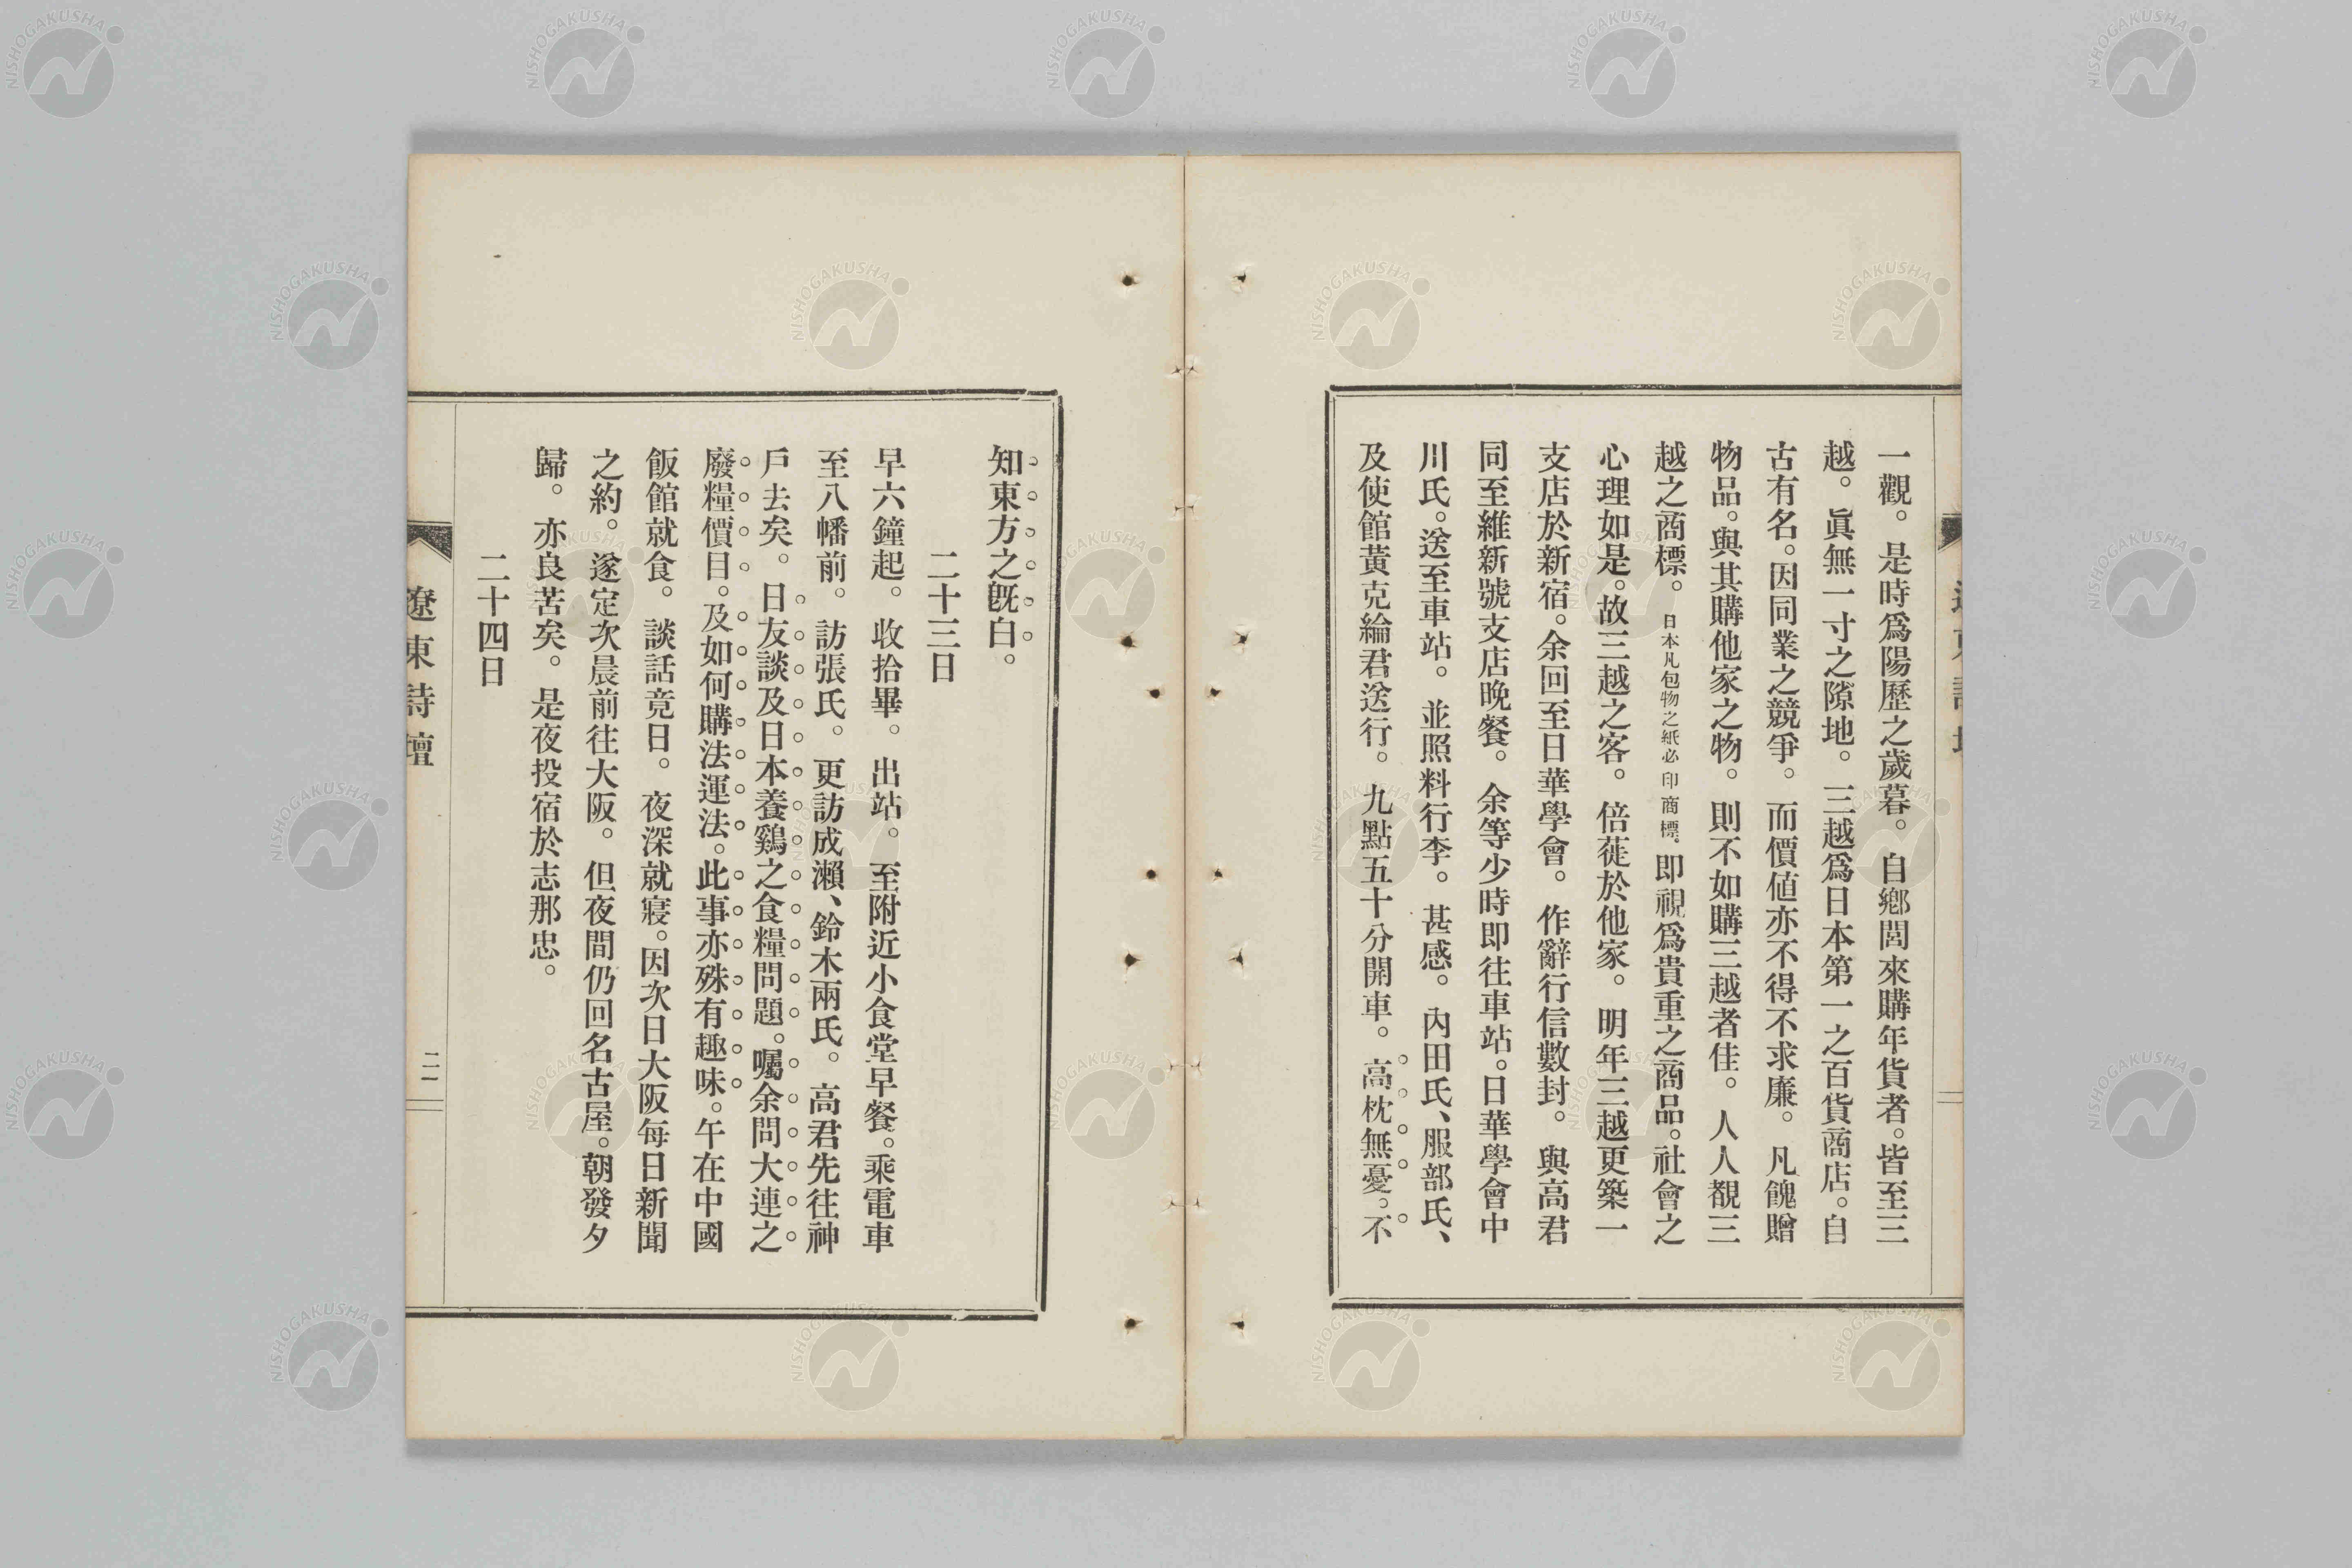 一觀。是時爲陽歷之歲暮。自鄉閭來購年貨者。皆至三
越。眞無一寸之隙地。三越爲日本第一之百貨商店。自
古有名。因同業之競爭。而價値亦不得不求廉。凡餽贈
物品。與其購他家之物。則不如購三越者佳。人人覩三
越之商標。日本凡包物之紙必印商標。即視爲貴重之商品。社會之
心理如是。故三越之客。倍蓰於他家。明年三越更築一
支店於新宿。余回至日華學會。作辭行信數封。與高君
同至維新號支店晩餐。余等少時即往車站。日華學會中
川氏。送至車站。並照料行李。甚感。內田氏、服部氏、
及使館黃克綸君送行。九點五十分開車。高枕無憂。不
知東方之旣白。
二十三日
早六鐘起。收拾畢。出站。至附近小食堂早餐。乘電車
至八幡前。訪張氏。更訪成瀨、鈴木兩氏。高君先往神
戶去矣。日友談及日本養鷄之食糧問題。囑余問大連之
廢糧價目。及如何購法運法。此事亦殊有趣味。午在中國
飯館就食。談話竟日。夜深就寢。因次日大阪每日新聞
之約。遂定次晨前往大阪。但夜間仍回名古屋。朝發夕
歸。亦良苦矣。是夜投宿於志那忠。
二十四日
遼東詩壇
二一
NISHOGAKUSHA